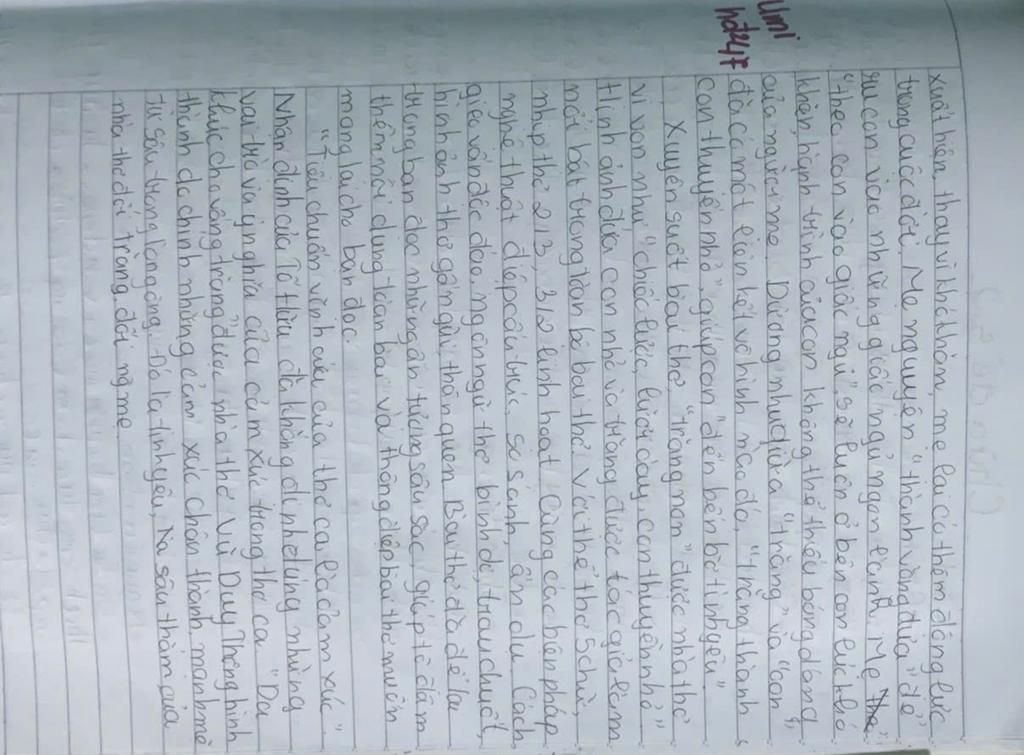 Umi
hđ247
xuất hiện, thay vì khó khăn, mẹ lại có thêm động lực
trong cuộc đời. Mẹ nguyện "thành võng đưa" để
ru con vào những giấc ngủ ngon lành. Mẹ
"theo con vào giấc ngủ", sẽ luôn ở bên con lúc thơ
hành trình của con không thể thiếu bóng dáng
của người mẹ. Dường như giữa "trăng" và "con"
đã có một liên kết vô hình nào đó, "trăng thành
con thuyền nhỏ" giúp con "đến bến bờ tình yêu".
Xuyên suốt bài thơ, "trăng non" được nhà thơ
ví von như "chiếc lược, lưỡi cày, con thuyền nhỏ".
Hình ảnh đứa con nhỏ và trăng được tác giả làm
nổi bật trong toàn bộ bài thơ. Với thể thơ 5 chữ,
nhịp thơ 2/3, 3/2 linh hoạt. Cùng các biện pháp
nghệ thuật điệp cấu trúc, so sánh, ẩn dụ. Cách
gieo vần độc đáo, ngôn ngữ thơ bình dị, trau chuốt,
hình ảnh thơ gần gũi, thân quen. Bài thơ đã để lại
trong bạn đọc những ấn tượng sâu sắc, giúp tô đậm
thêm nội dung toàn bài và thông điệp bài thơ muốn
mang lại cho bạn đọc.
"Tiêu chuẩn vĩnh cửu của thơ ca là cảm xúc"
Nhận định của Tố Hữu đã khẳng định đúng những
vai trò và ý nghĩa của cảm xúc trong thơ ca. "Da
khúc cho vầng trăng" được nhà thơ Vũ Duy Thông hình
thành do chính những cảm xúc chân thành, mãnh mẽ
từ sâu trong lòng ông. Đó là tình yêu, sâu thẳm của
nhà thơ đối trăng, đối ng mẹ.